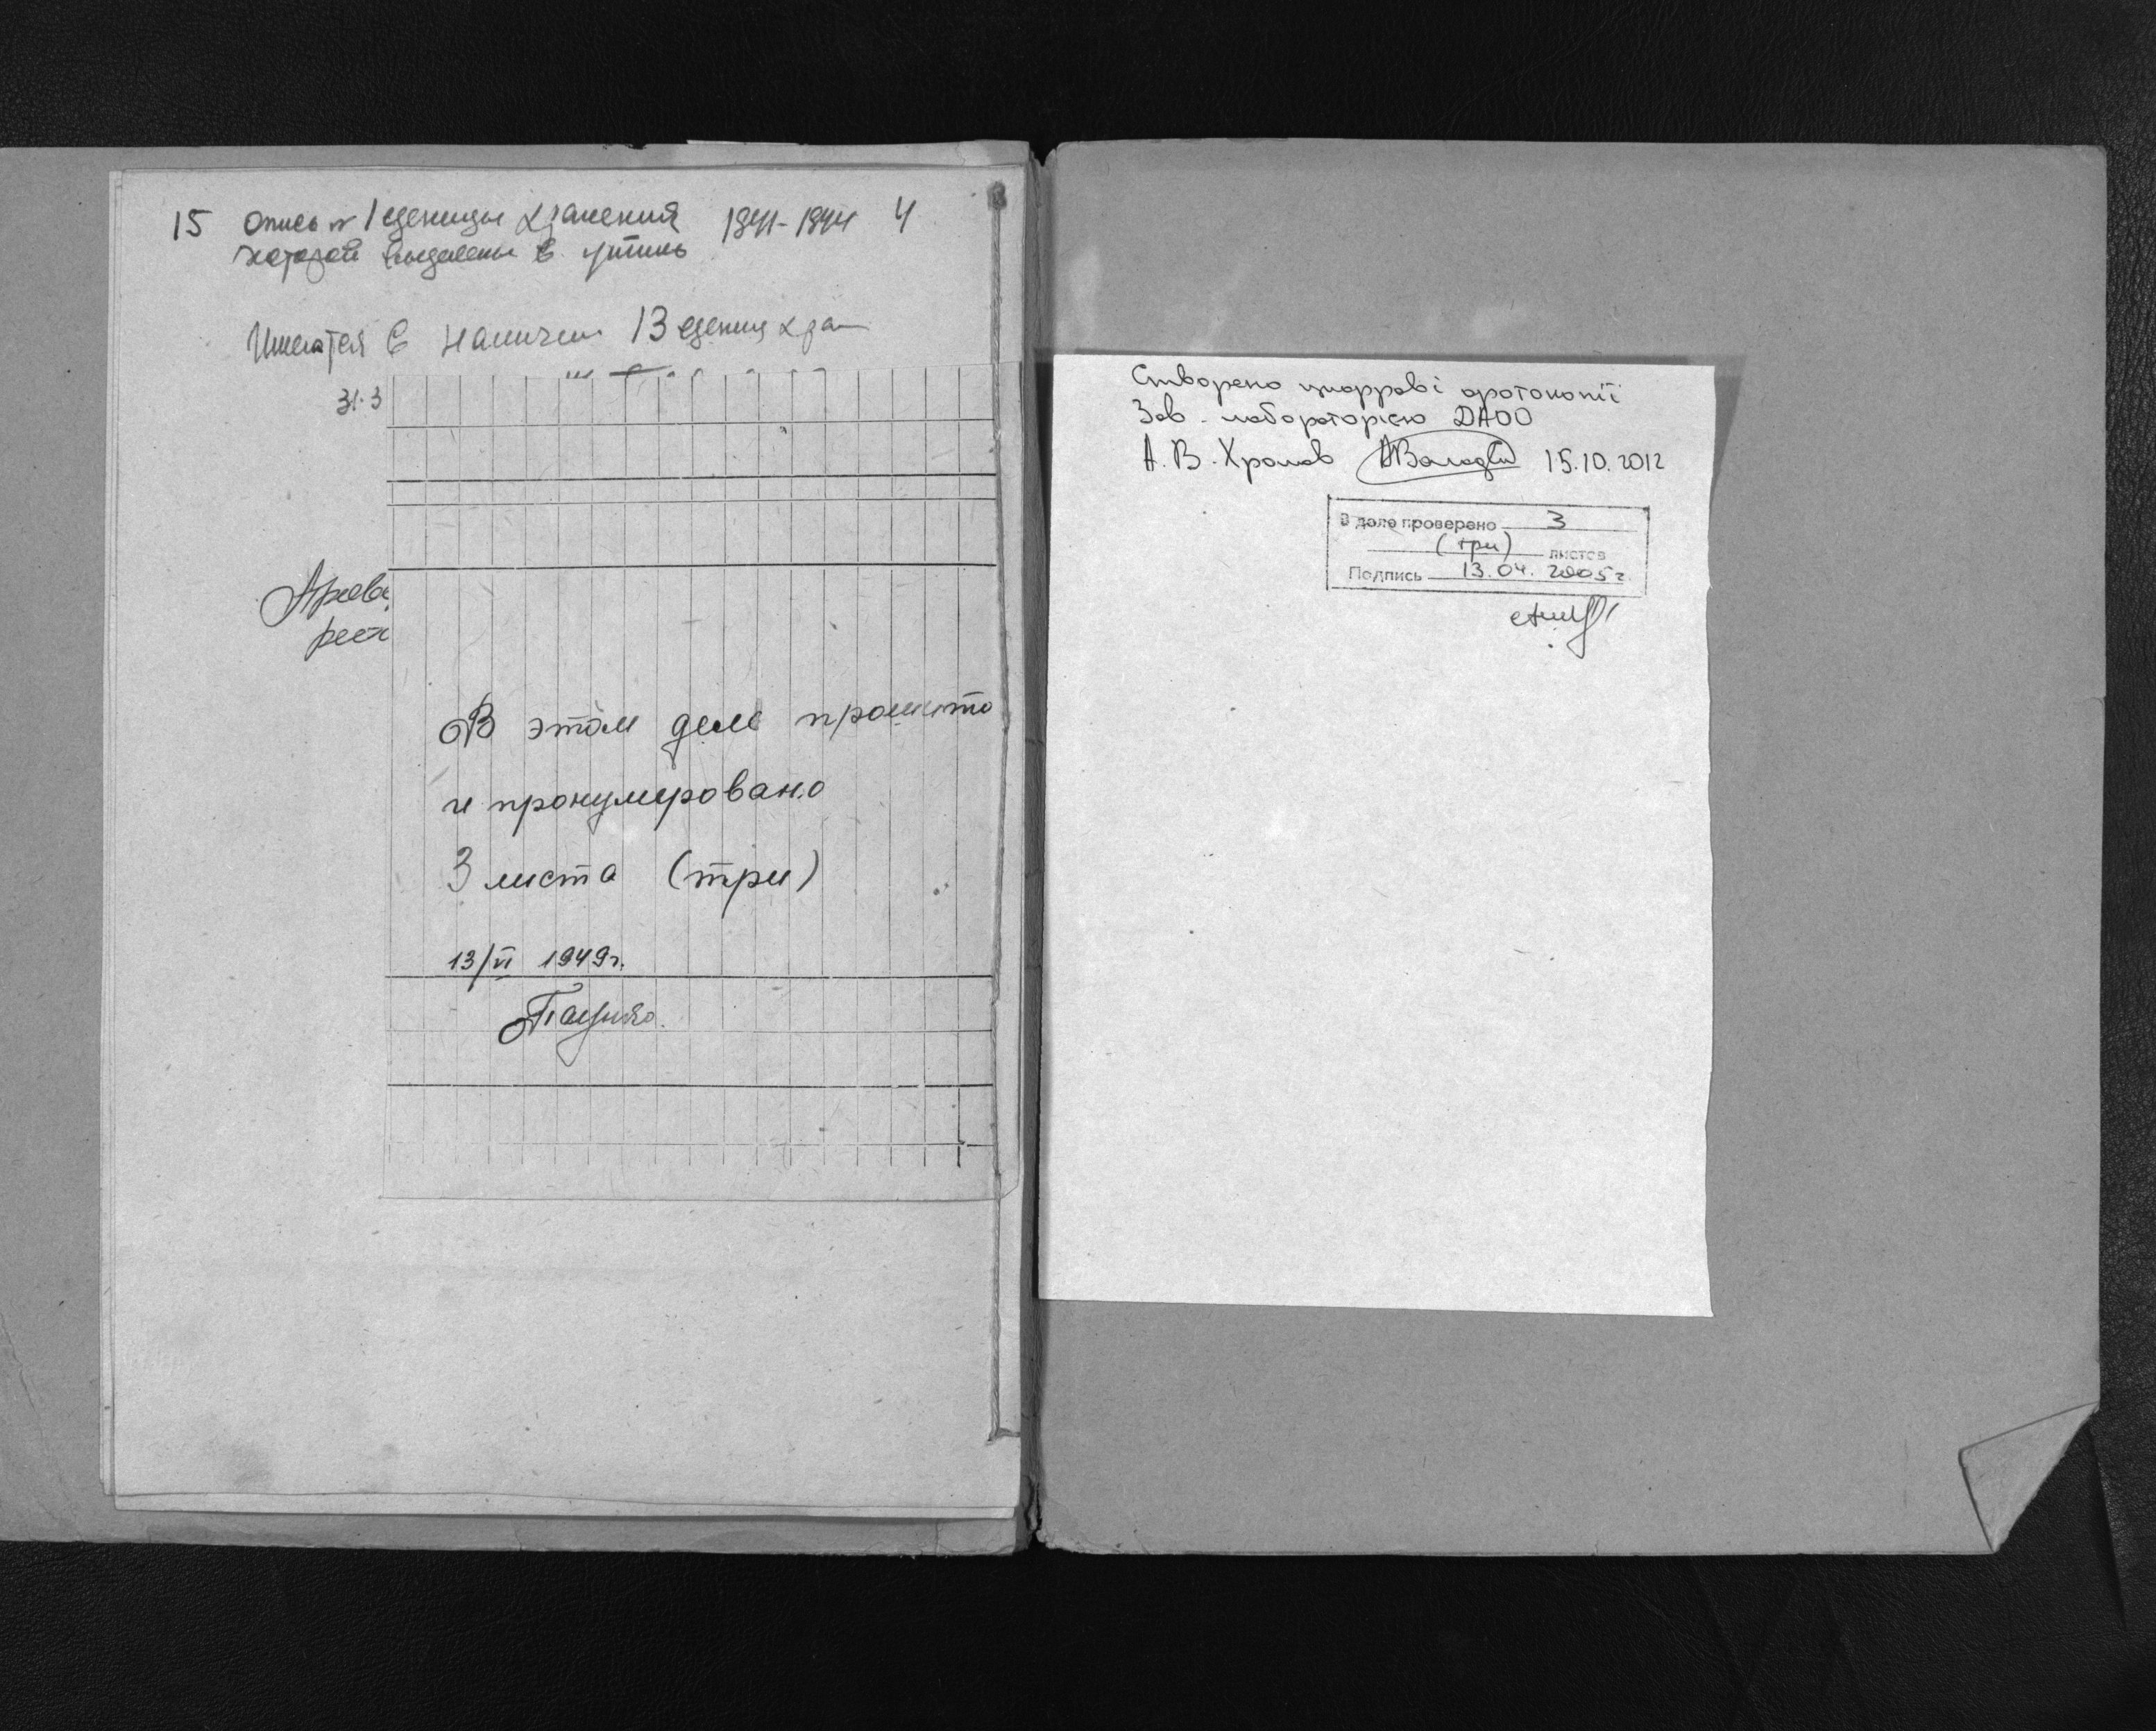 15 Опись № 1 единицы хранения 1941-1944 4
которой выделены в утиль
Имеется в наличии 13 едениц хран
31.3
Архив
В этом деле прошито
и пронумеровано
3 листа (три)
13/VI 1949г.
Створено цифрові фотокопії
Зав. лабораторією ДАОО
А.В. Хромов 15.10.2012
В деле проверено 3
(три) листов
Подпись 13.04.2005г.